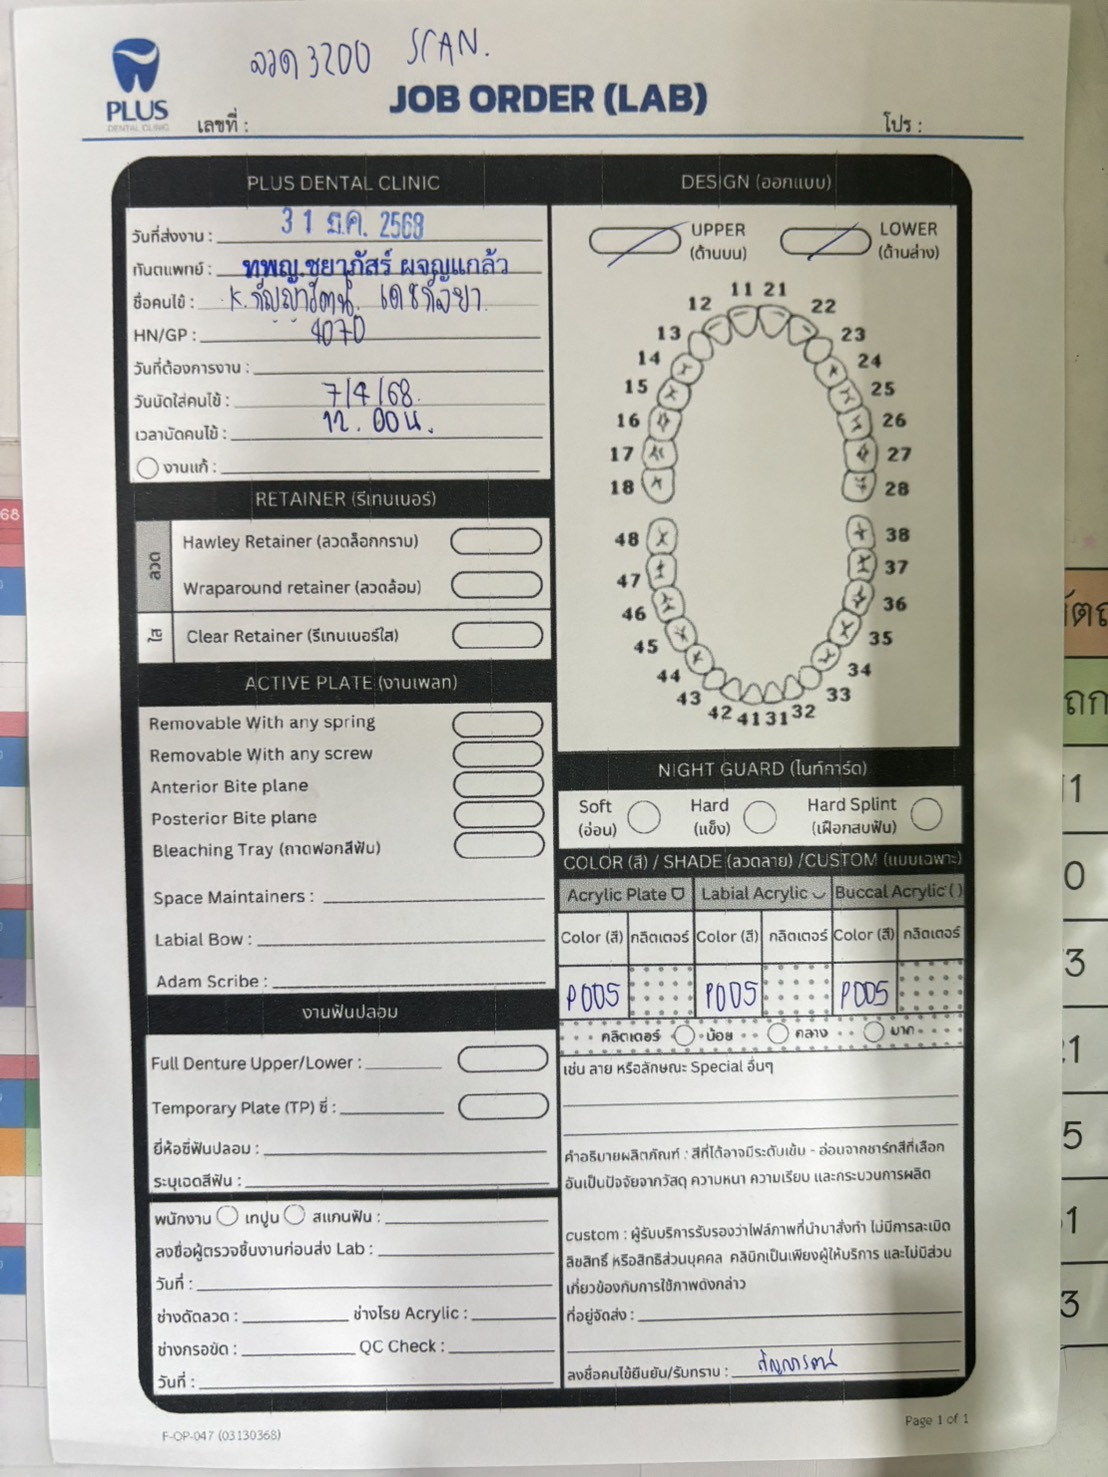 ลวด 3200 SCAN.
PLUS
DENTAL CLINIC
JOB ORDER (LAB)
เลขที่ :
โปร :
PLUS DENTAL CLINIC
วันที่ส่งงาน : 31 มี.ค. 2568
ทันตแพทย์ : ทพญ.ชยาภัสร์ ผจญแกล้ว
ชื่อคนไข้ : K.กัญญารัตน์
HN/GP : 4070
วันที่ต้องการงาน :
วันนัดใส่คนไข้ : 7/4/68
เวลานัดคนไข้ : 12.00 น.
งานแก้ :
RETAINER (รีเทนเนอร์)
ลวด
Hawley Retainer (ลวดล็อกกราม)
Wraparound retainer (ลวดล้อม)
ใส
Clear Retainer (รีเทนเนอร์ใส)
ACTIVE PLATE (งานเพลท)
Removable With any spring
Removable With any screw
Anterior Bite plane
Posterior Bite plane
Bleaching Tray (ถาดฟอกสีฟัน)
Space Maintainers :
Labial Bow :
Adam Scribe :
งานฟันปลอม
Full Denture Upper/Lower :
Temporary Plate (TP) ซี่ :
ยี่ห้อซี่ฟันปลอม :
ระบุเฉดสีฟัน :
พนักงาน เทปูน สแกนฟัน :
ลงชื่อผู้ตรวจชิ้นงานก่อนส่ง Lab :
วันที่ :
ช่างดัดลวด : ช่างโรย Acrylic :
ช่างกรอขัด : QC Check :
วันที่ :
DESIGN (ออกแบบ)
UPPER LOWER
(ด้านบน) (ด้านล่าง)
11 21
12 22
13 23
14 24
15 25
16 26
17 27
18 28
48 38
47 37
46 36
45 35
44 34
43 33
42 41 31 32
NIGHT GUARD (ไนท์การ์ด)
Soft Hard Hard Splint
(อ่อน) (แข็ง) (เฝือกสบฟัน)
COLOR (สี) / SHADE (ลวดลาย) /CUSTOM (แบบเฉพาะ)
Acrylic Plate Labial Acrylic Buccal Acrylic ( )
Color (สี) กลิตเตอร์ Color (สี) กลิตเตอร์ Color (สี) กลิตเตอร์
P005 P005 P005
กลิตเตอร์ น้อย กลาง มาก
เช่น ลาย หรือลักษณะ Special อื่นๆ
คำอธิบายผลิตภัณฑ์ : สีที่ได้อาจมีระดับเข้ม - อ่อนจากชาร์ทสีที่เลือก
อันเป็นปัจจัยจากวัสดุ ความหนา ความเรียบ และกระบวนการผลิต
custom : ผู้รับบริการรับรองว่าไฟล์ภาพที่นำมาสั่งทำ ไม่มีการละเมิด
ลิขสิทธิ์ หรือสิทธิส่วนบุคคล คลินิกเป็นเพียงผู้ให้บริการ และไม่มีส่วน
เกี่ยวข้องกับการใช้ภาพดังกล่าว
ที่อยู่จัดส่ง :
ลงชื่อคนไข้ยืนยัน/รับทราบ : กัญญารัตน์
F-OP-047 (03130368)
Page 1 of 1